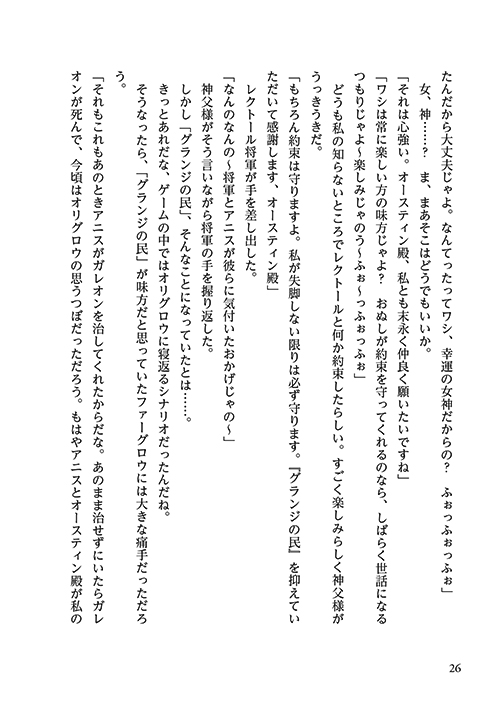 たんだから大丈夫じゃよ。なんてったってワシ、幸運の女神だからの？　ふぉっふぉっふぉ」
　女、神……？　ま、まあそこはどうでもいいか。
「それは心強い。オースティン殿、私とも末永く仲良く願いたいですね」
「ワシは常に楽しい方の味方じゃよ？　おぬしが約束を守ってくれるのなら、しばらく世話になる
つもりじゃよ～楽しみじゃのう～ふぉ～っふぉっふぉ」
　どうも私の知らないところでレクトールと何か約束したらしい。すごく楽しみらしく神父様が
うっきうきだ。
「もちろん約束は守りますよ。私が失脚しない限りは必ず守ります。『グランジの民』を抑えてい
ただいて感謝します、オースティン殿」
　レクトール将軍が手を差し出した。
「なんのなんの～将軍とアニスが彼らに気付いたおかげじゃの～」
　神父様がそう言いながら将軍の手を握り返した。
　しかし「グランジの民」、そんなことになっていたとは……。
　きっとあれだな、ゲームの中ではオリグロウに寝返るシナリオだったんだね。
　そうなったら、「グランジの民」が味方だと思っていたファーグロウには大きな痛手だっただろ
う。
「それもこれもあのときアニスがガレオンを治してくれたからだな。あのまま治せずにいたらガレ
オンが死んで、今頃はオリグロウの思うつぼだっただろう。もはやアニスとオースティン殿が私の
26